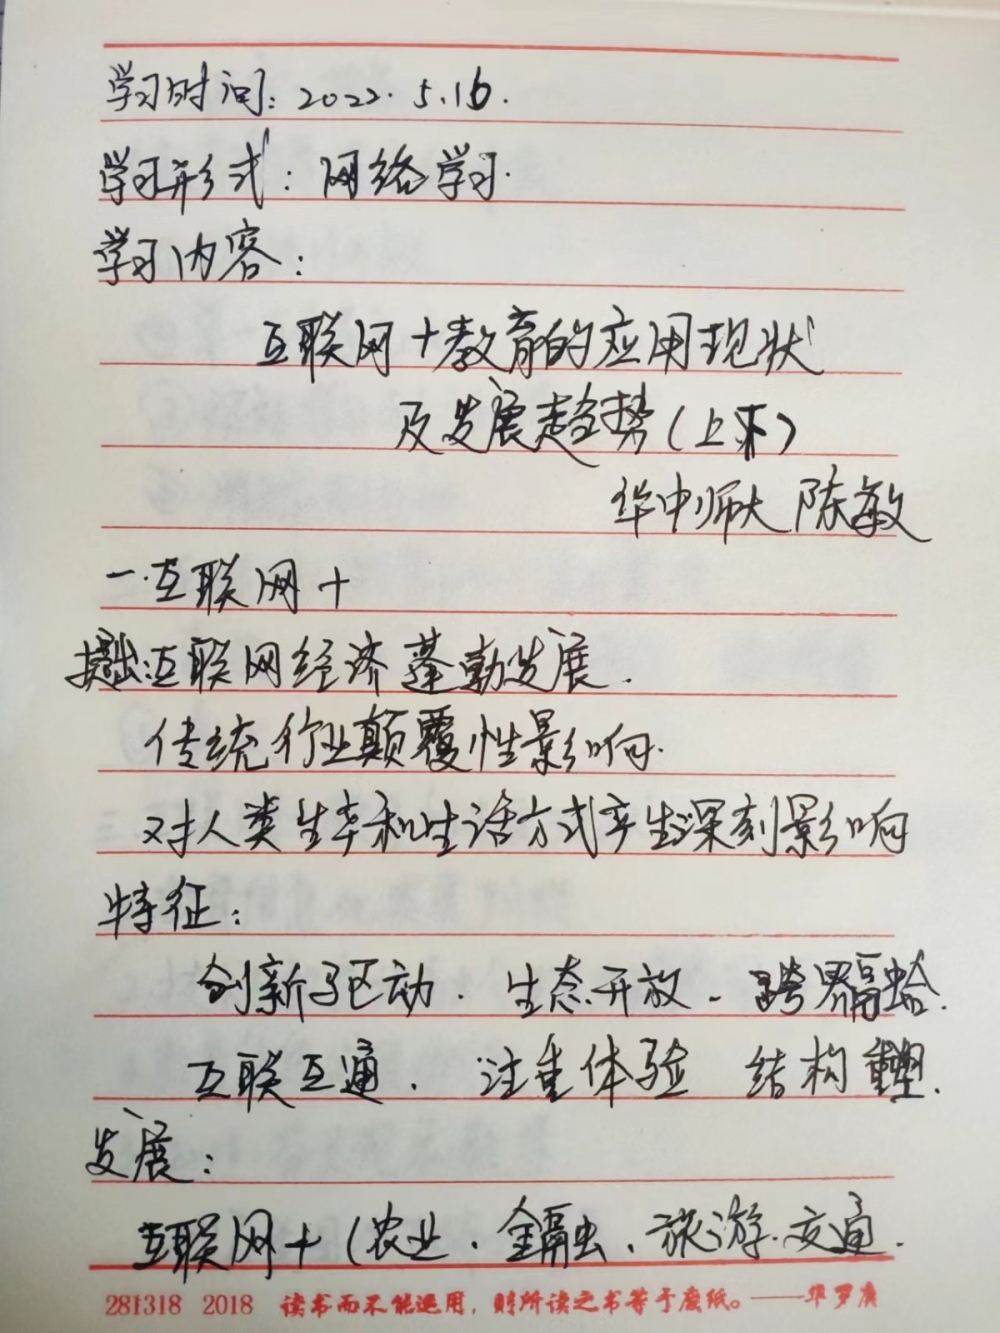 学习时间: 2022.5.16.
学习形式: 网络学习.
学习内容:
互联网+教育的应用现状
及发展趋势(上下)
华中师大 陈敏
一.互联网+
提出:互联网经济蓬勃发展.
传统行业颠覆性影响.
对人类生产和生活方式产生深刻影响
特征:
创新驱动. 生态开放. 跨界融合.
互联互通. 注重体验 结构重塑.
发展:
互联网+(农业、金融、旅游.交通.
281318 2018 读书而不能运用，则所读之书等于废纸。——华罗庚